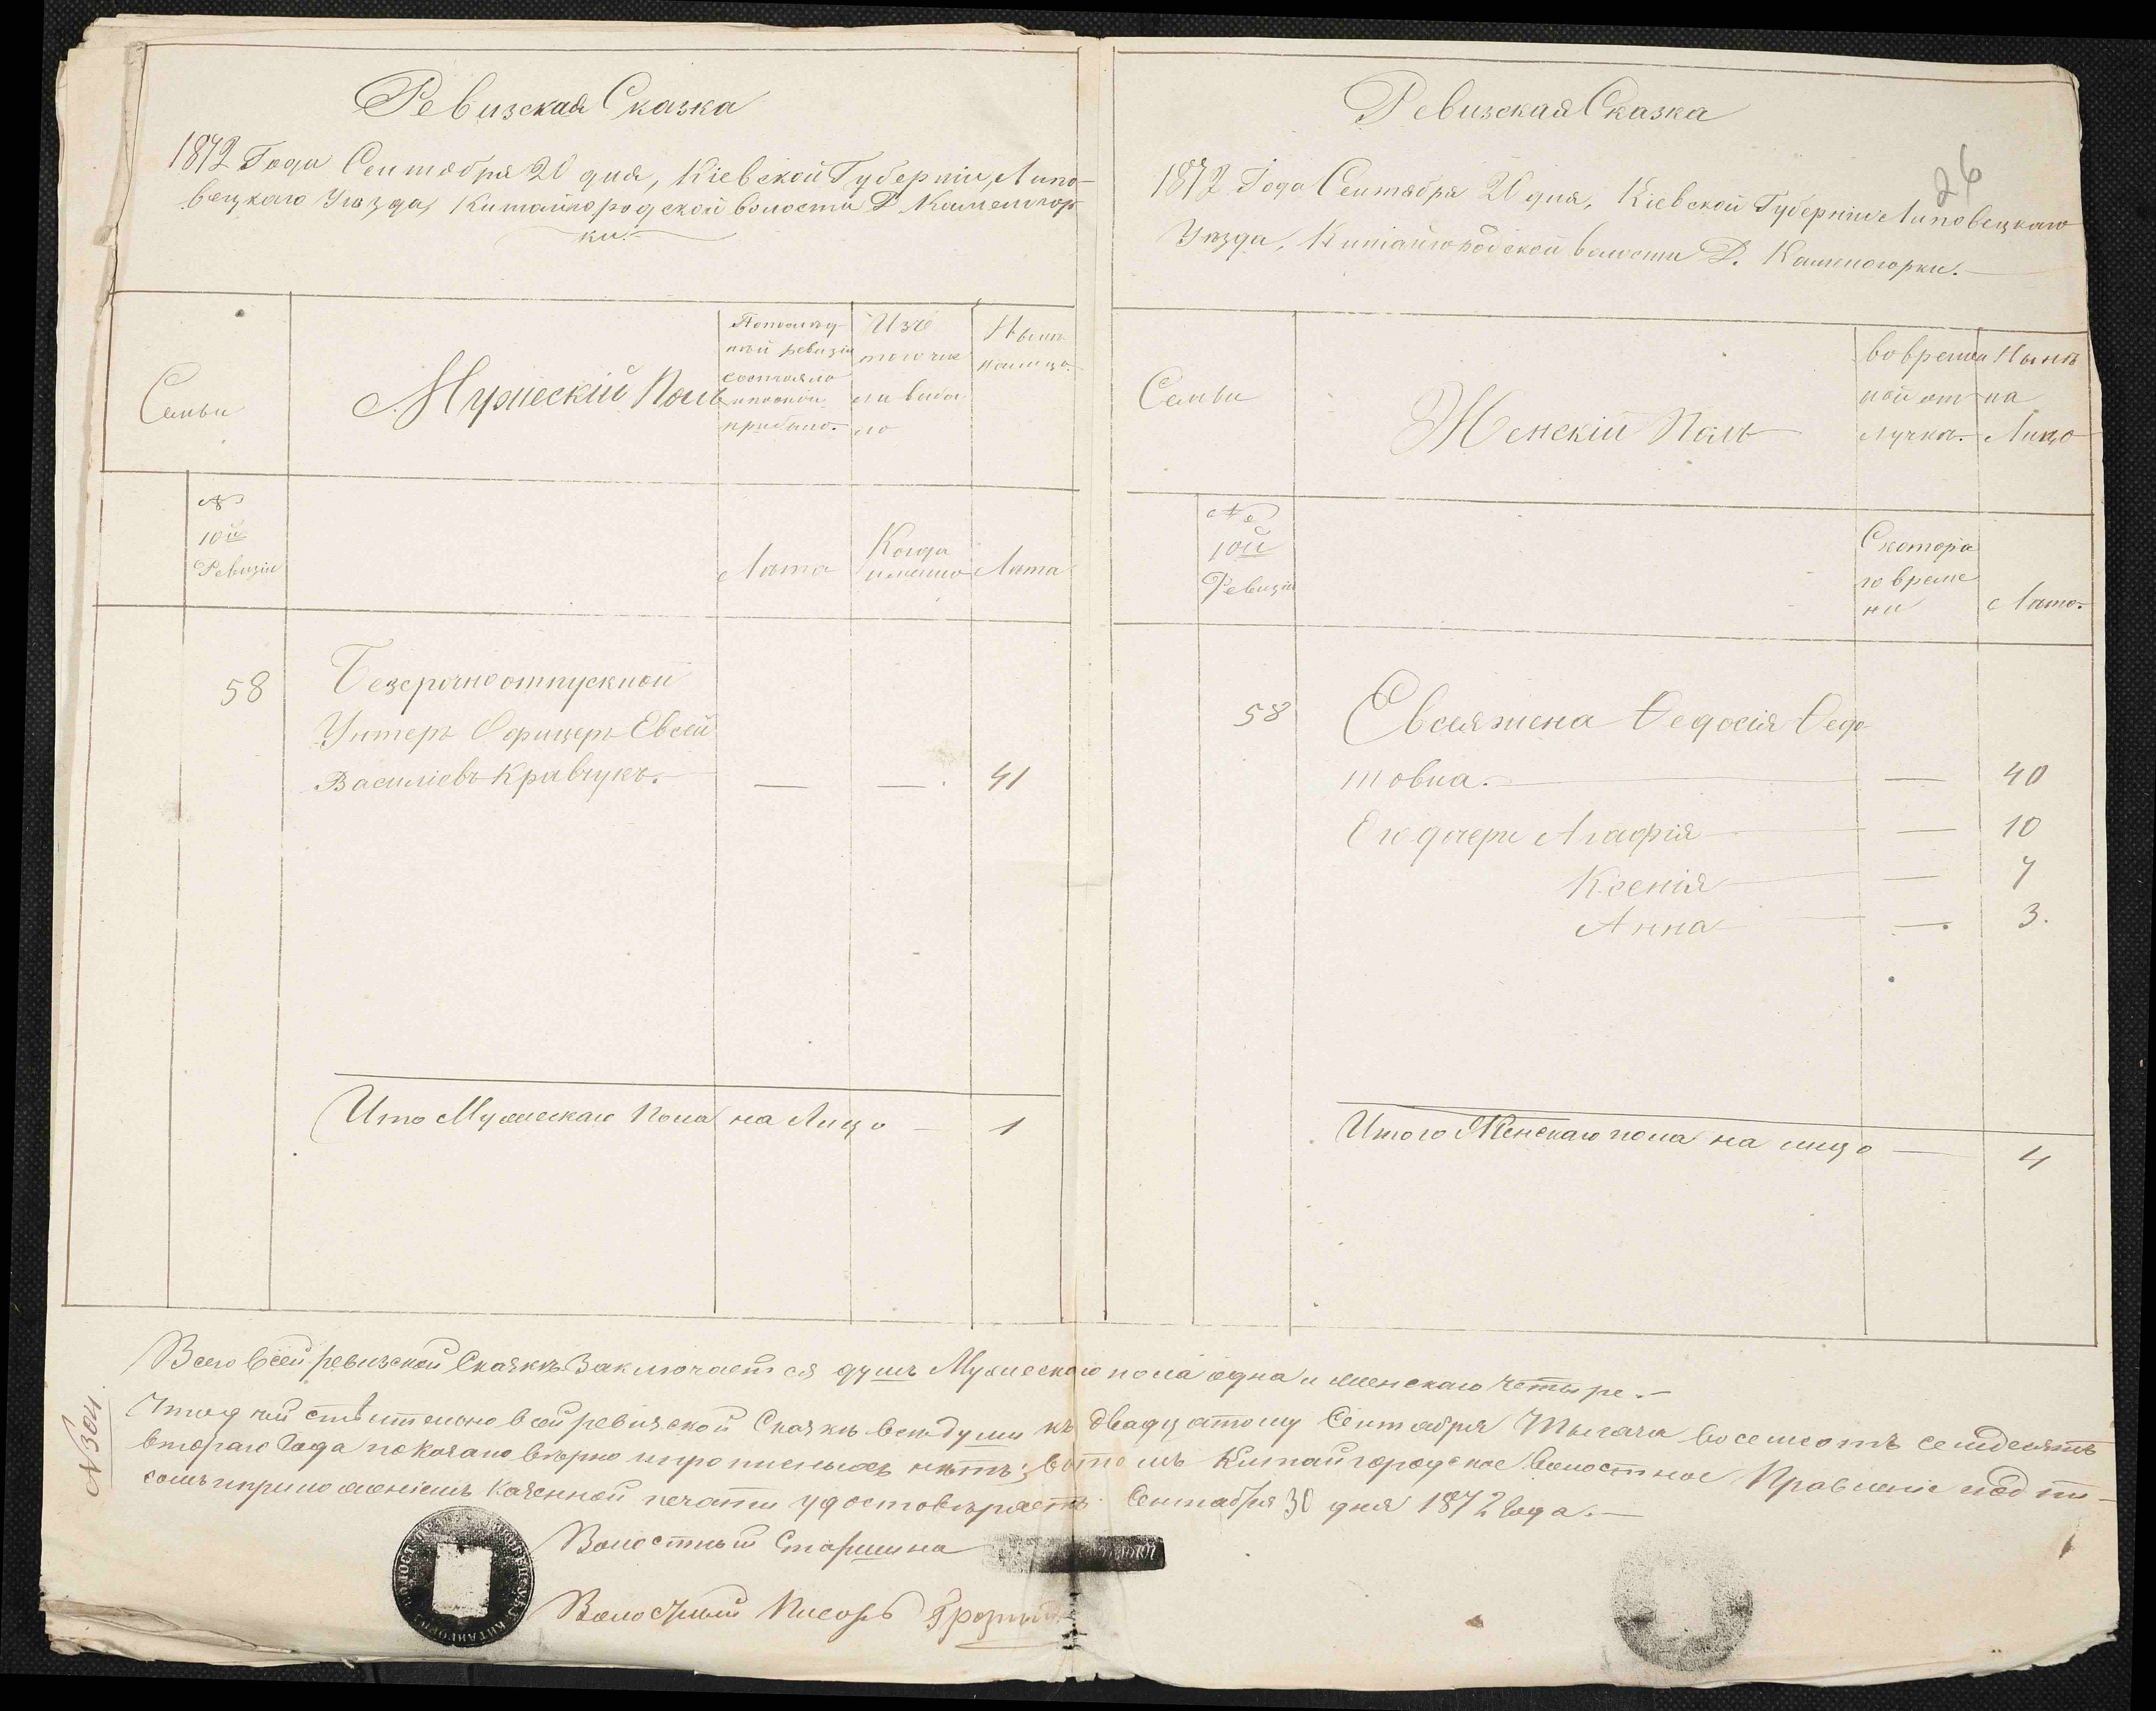 Ревизская Сказка
1872 Года Сентября 20 дня, Кіевской Губерніи, Липо-
вецкаго Уѣзда, Китайгородской волости Д. Каменогор-
ки.
Семьи
Мужескій Полъ
По послѣд-
ней ревизіи
состояло
и послѣ
прибыло.
Изъ
того чис
ла выбы
ло
Нынѣ
на лицо.
№
10й
Ревизіи
Лѣта
Когда
именно
Лѣта
58
Безсрочноотпускной
Унтеръ Офицеръ Евсей
Василіевъ Кравчукъ. — — . 41
Итого Мужескаго Пола на Лицо — 1
Ревизская Сказка
26
1872 Года Сентября 20 дня, Кіевской Губерніи Липовецкаго
Уѣзда, Китайгородской волости Д. Каменогорки.
Семьи
Женскій Полъ
во времен
ной от
лучкѣ.
Нынѣ
на
Лицо
№
10й
Ревизіи
С котора
го време
ни
Лѣта.
58
Евсея жена Ѳедосія Ѳедо
товна. — — 40
Его дочери Агафія — — 10
Ксенія — — 7
Анна — — . 3.
Итого Женскаго пола на лицо — 4
Всего в сей ревизской Сказкѣ Заключается душъ Мужескаго пола одна и женскаго четыре. —
Что дѣйствительно в сей ревизской Сказкѣ всѣ души къ двадцатому Сентября Тысяча восемсотъ семдесятъ
втораго Года показано вѣрно и прописныхъ нѣтъ; въ томъ Китайгородское Волостное Правленіе подпи-
сомъ и приложеніемъ Казенной печати удостовѣряетъ Сентября 30 дня 1872 Года. —
№ 304.
Волостный Старшина
Волостный Писарь